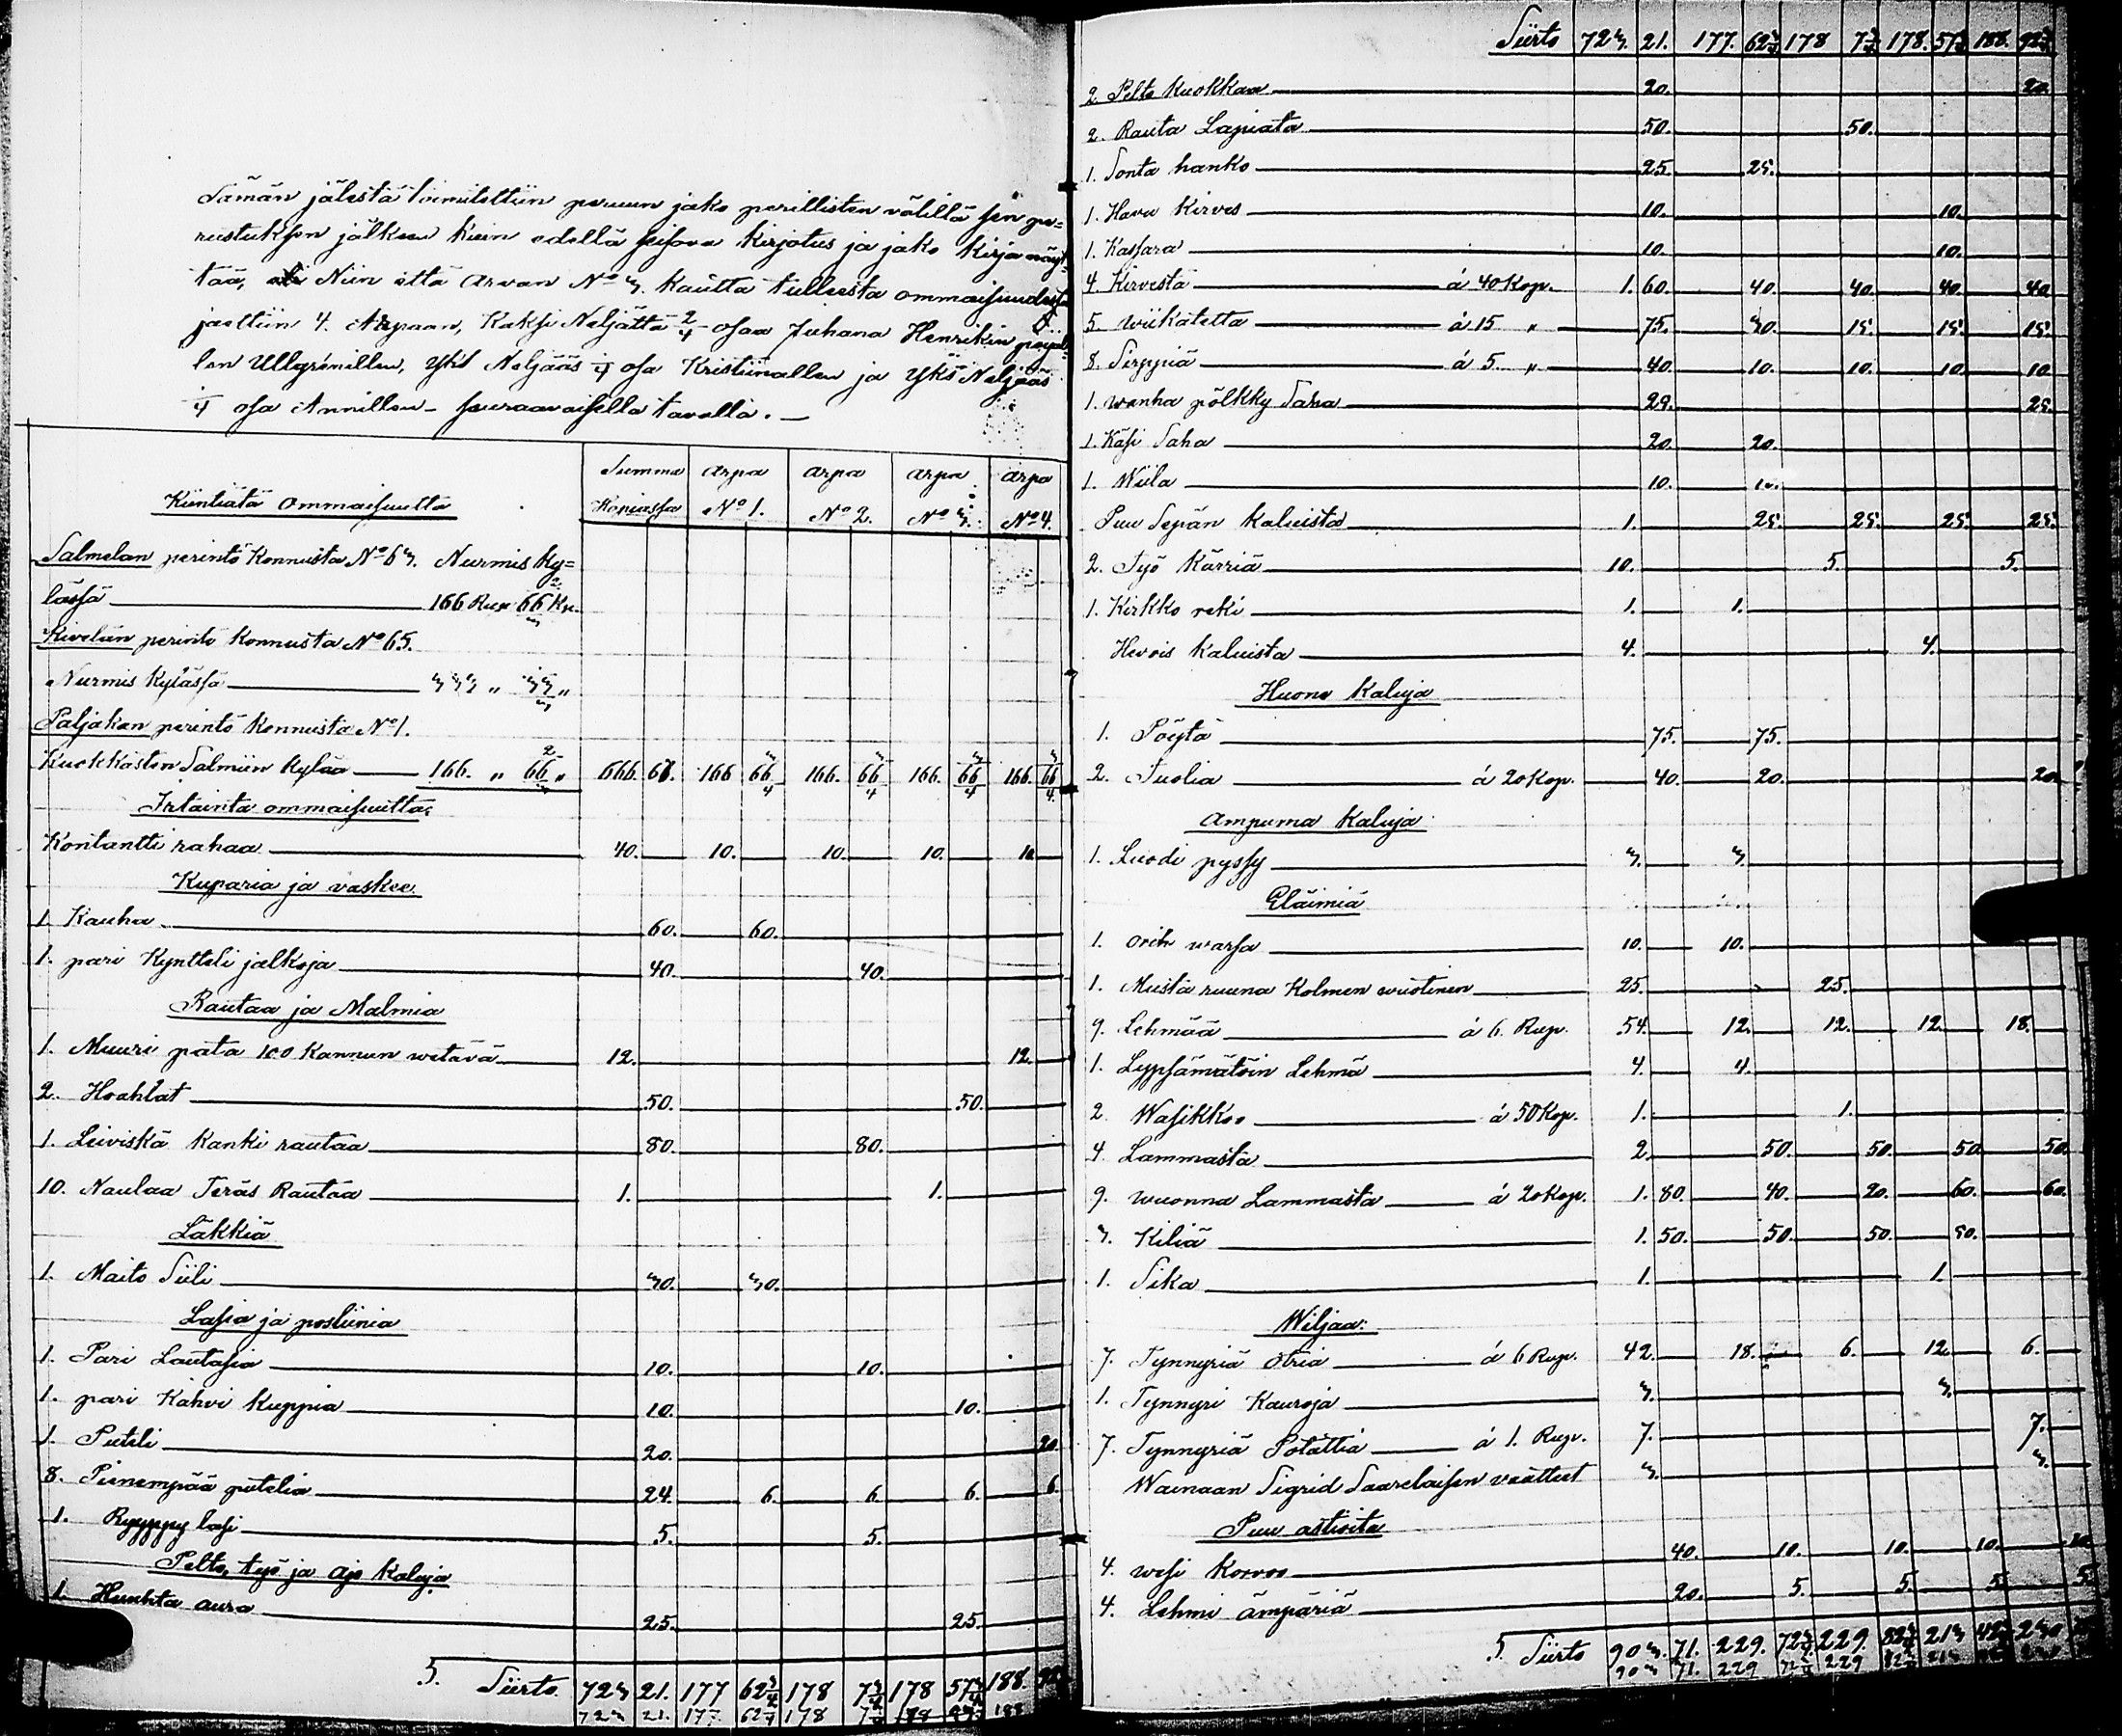 Tämän jälestä toimitettiin peruun jako perillisten välillä sen pe=
rustuksen jälkeen kuin edellä seisova kirjotus ja jako kirja näyt=
tää, Niin että arvan No 3. kautta tulleesta ommaisuudesta
jaettiin 4. Arpaan, Kaksi Neljättä 2/4 osaa Juhana Henrikin pojal=
len Ullgrenillen, Yksi Neljääs 1/4 osa Kristiinallen ja Yksi Neljääs
1/4 osa Annillen - seuraavaisella tavalla. —
Kiintiätä ommaisuutta Summa Kopiassa arpa No 1. arpa No 2. arpa No 3. arpa No 4.
Salmelan perintö konnusta No 63. Nurmis ky=
lässä 166 Rup 66 2/3 Kp.
Kivelän perintö konnusta No 65.
Nurmis kylässä 333 " 33 1/3 "
Paljakan perintö konnusta No 1.
Kuokkasten Salmiin kylää 166. " 66 2/3 " 666. 67. 166 66 3/4 166. 66 3/4 166. 66 3/4 166. 66 3/4
Irtainta ommaisuutta:
Kontantti rahaa 40. 10. 10. 10. 10
Kuparia ja vaskee.
1. Kauha 60. 60.
1. pari Kyntteli jalkoja 40. 40.
Rautaa ja Malmia
1. Muuri pata 100 Kannun wetävä 12. 12.
2. Haahlat 50. 50.
1. Leiviskä Kanki rautaa 80. 80.
10. Naulaa Teräs Rautaa 1. 1.
Läkkiä
1. Maito Siili 30. 30.
Lasia ja posliinia
1. Pari Lautasia 10. 10.
1. pari Kahvi kuppia 10. 10.
1. Puteli 20. 20.
8. Pienempää putelia 24. 6. 6. 6. 6.
1. Ryyppy lasi 5. 5.
Pelto, työ ja ajo kaluja
1. Huuhta aura 25. 25.
5. Siirto 723 21. 177 62 3/4 178 7 3/4 178 57 3/4 188. 92 3/4
723 21. 177 62 3/4 178 7 3/4 178 57 3/4 188
Siirto 723. 21. 177. 62 3/4 178 7 3/4 178. 57 3/4 188. 92 3/4
2. Pelto kuokkaa 20. 20.
2. Rauta Lapiata 50. 50.
1. Sonta hanko 25. 25.
1. Havu kirves 10. 10.
1. Kassara 10. 10.
4. Kirvestä á 40 Kop. 1. 60. 40. 40. 40. 40
5. wiikatetta á 15 " 75. 30. 15. 15. 15.
8. Sirppiä á 5. " 40. 10. 10. 10. 10
1. wanha pölkky Saha 25. 25.
1. Käsi Saha 20. 20.
1. Wiila 10. 10.
Puu Sepän kaluista 1. 25. 25. 25. 25.
2. Työ Kärriä 10. 5. 5.
1. Kirkko reki 1. 1.
Hevois kaluista 4. 4.
Huone kaluja
1. Pöytä 75. 75.
2. Tuolia á 20 Kop. 40. 20. 20.
Ampuma kaluja
1. Luodi pyssy 3. 3.
Eläimiä
1. orih warsa 10. 10.
1. Musta ruuna Kolmen wuotinen 25. 25.
9. Lehmää á 6. Rup. 54. 12. 12. 12. 18.
1. Lypsämätöin Lehmä 4. 4.
2. Wasikkoo á 50 Kop. 1. 1.
4. Lammasta 2. 50. 50. 50. 50.
9. wuonna Lammasta á 20 Kop. 1. 80. 40. 20. 60. 60.
3. Kiliä 1. 50. 50. 50. 50.
1. Sika 1. 1.
Wiljaa:
7. Tynnyriä otria á 6 Rup. 42. 18. 6. 12. 6.
1. Tynnyri Kauroja 3. 3.
7. Tynnyriä Potattia á 1. Rup. 7. 7.
Wainaan Sigrid Saarelaisen vaatteet 3. 3.
Puu astioita
4. wesi Korvoo 40. 10. 10. 10. 10
4. Lehmi ämpäriä 20. 5. 5. 5. 5.
5. Siirto 903. 71. 229. 72 3/4 229. 82 3/4 213 42 3/4 230
903 71. 229 72 3/4 229 82 3/4 213